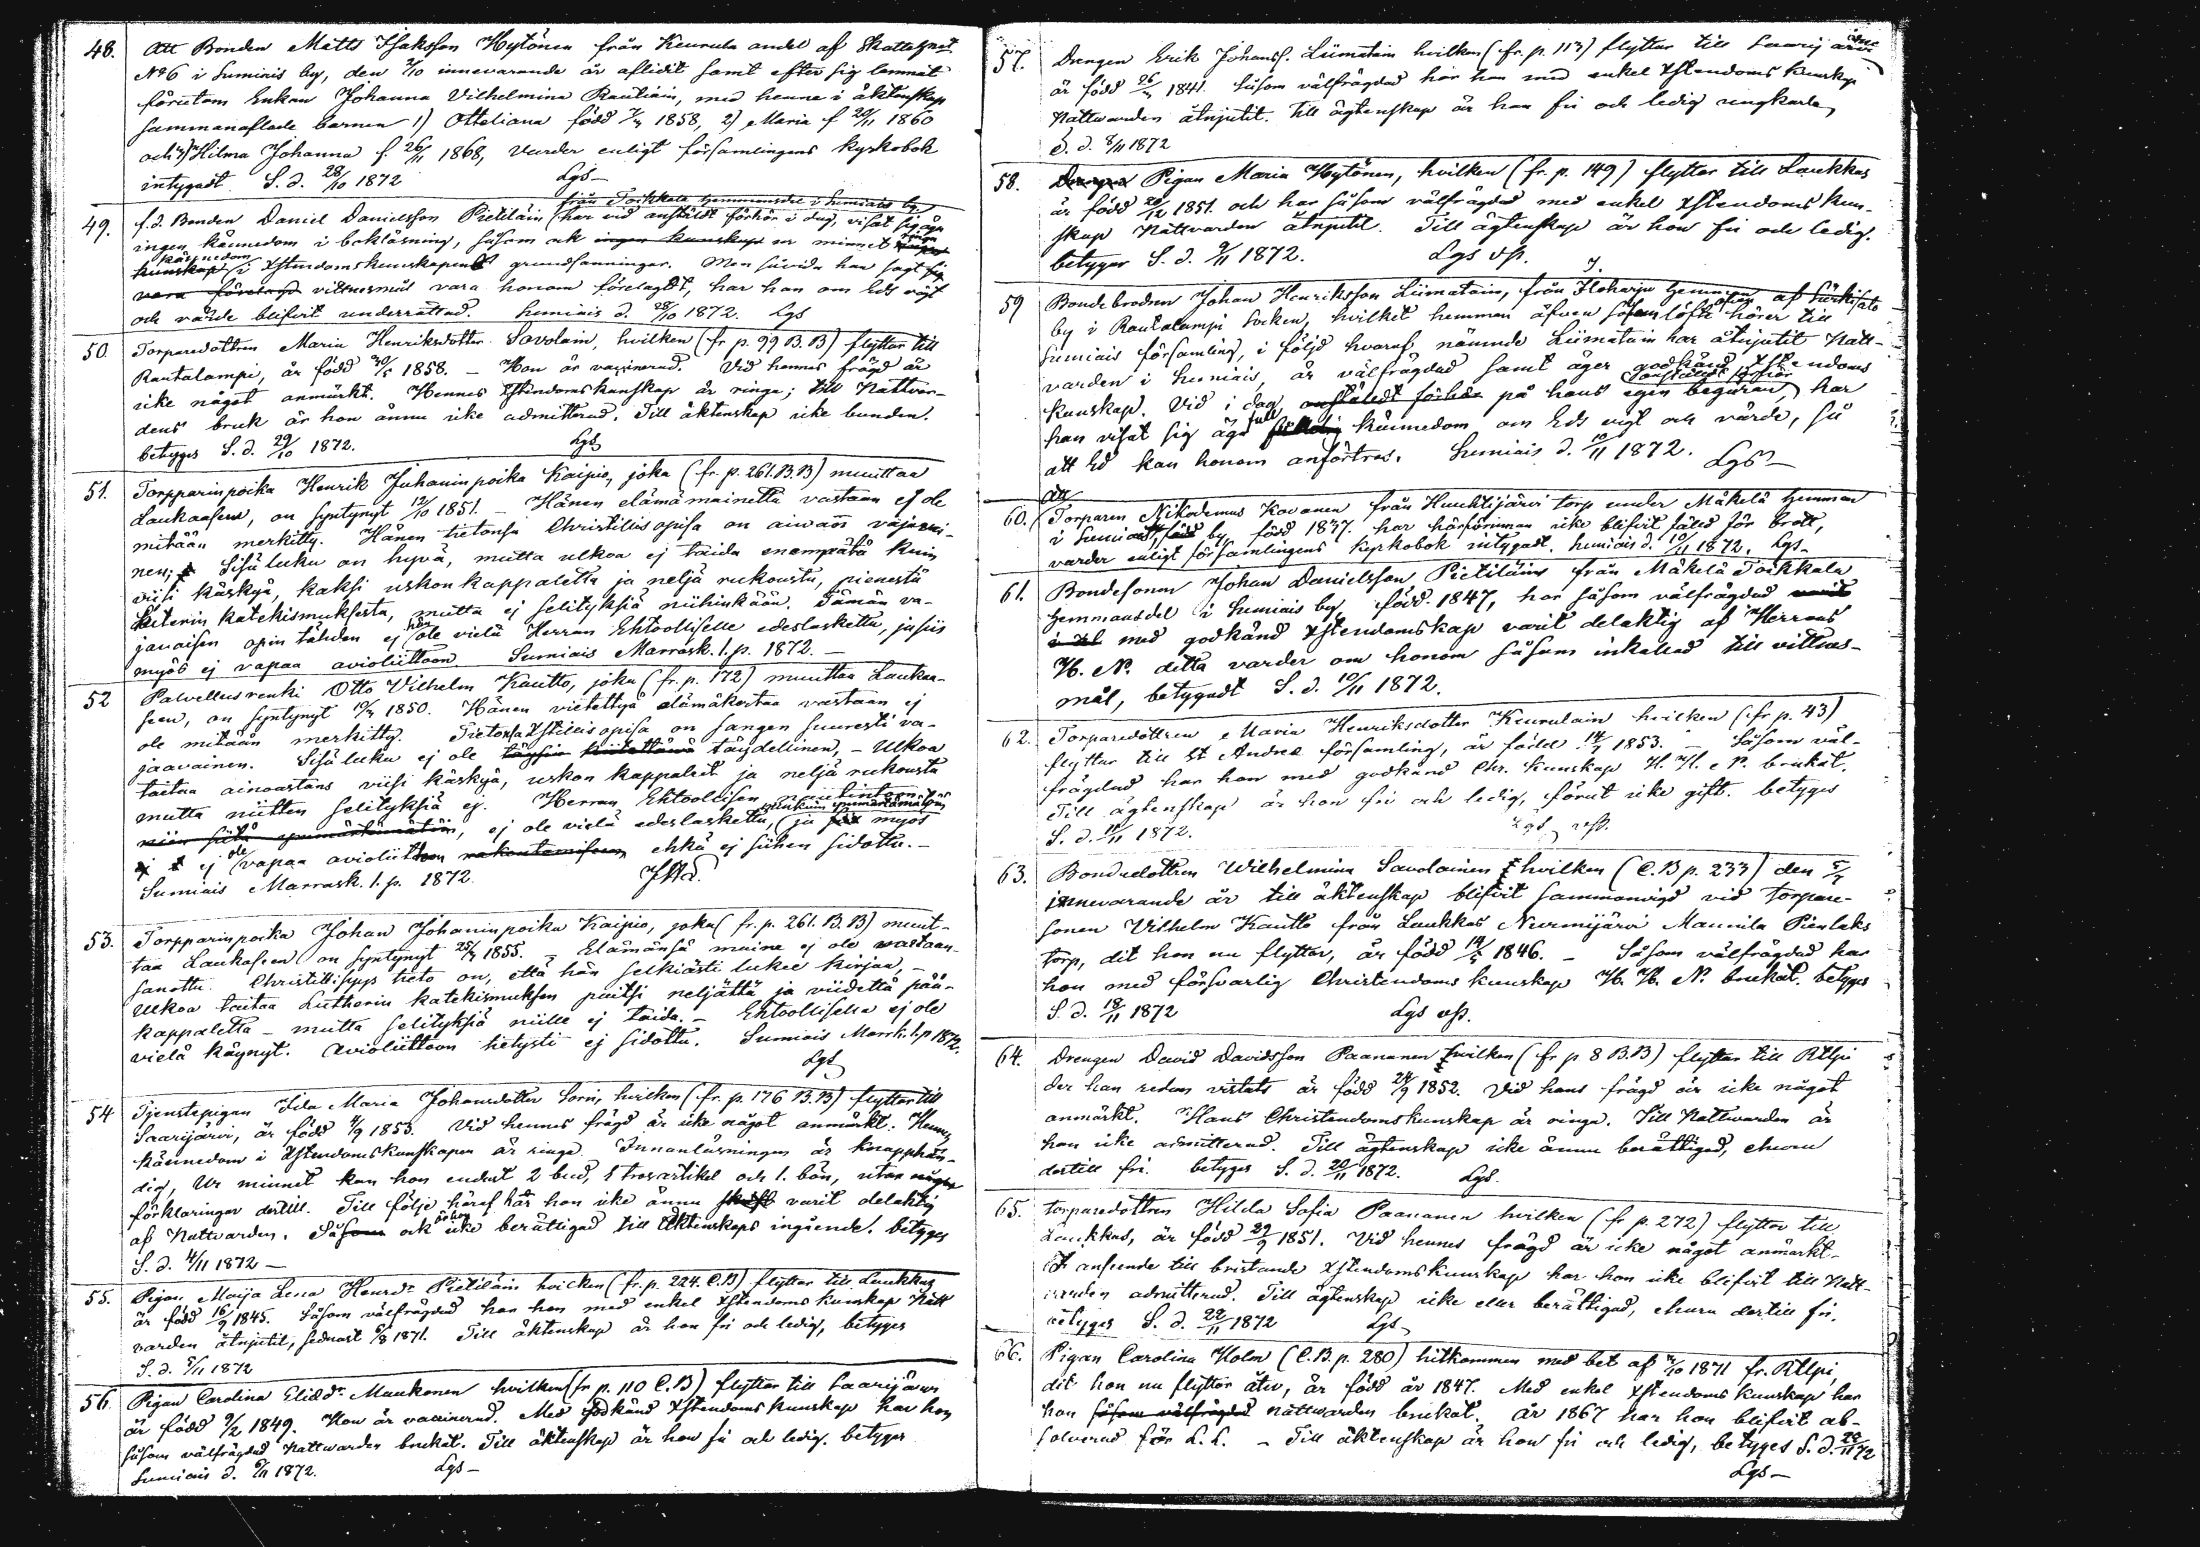 48. Att Bonden Matts Isaksson Hytönen från Keurula andel af Skattehem.
N:o 6 i Sumiais by, den 2/10 innevarande år aflidit samt efter sig lemnat
förutom Enkan Johanna Vilhelmina Rautiain, med henne i äktenskap
sammanaflade barnen 1) Ottiliana född 1858, 2) Maria f 20/11 1860
och 3) Hilma Johanna f. 26/11 1868, varder enligt församlingens kyrkobok
intygadt. S. d. 28/10 1872 Lgs
från Toikkala hemmansdel i Sumiais by
49. f.d. Bonden Daniel Danielsson Pietiläin har vid anstäldt förhör i dag, visat sig äga
ingen kännedom i bokläsning, såsom ock ingen kunskap ur minnet ringa
kännedom
kunskap i Xstendomskunskapens grundsanningar. Men såvida han sagt sig
vara förelagd vittnesmål vara honom förelagdt, har han om Eds vigt
och värde blifvit underrättad. Sumiais d. 28/10 1872. Lgs
50. Torparedottren Maria Henriksdotter Savolain, hvilken (fr p. 99 B.B) flyttar till
Rautalampi, är född 30/5 1858. – Hon är vaccinerad. Vid hennes frägd är
icke något anmärkt. Hennes Xstendomskunskap är ringa; till Nattvar-
dens bruk är hon ännu icke admitterad. Till äktenskap icke bunden.
betyges S. d. 29/10 1872. Lgs
51. Torpparinpoika Henrik Juhaninpoika Kaipio, joka (fr. p. 261. B.B) muuttaa
Laukaaseen, on syntynyt 12/10 1851. – Hänen elämämainetta vastaan ej ole
mitään merkitty. Hänen tietonsa Christillisopisa on aivan vajavai-
nen; Sisäluku on hyvä, mutta ulkoa ej taida enempätä kuin
viisi käskyä, kaksi uskonkappaletta ja neljä rukousta, pienestä
Luterin katekismuksesta, mutta ej selityksiä niihinkään. Tämän va-
janaisen opin tähden ej hän ole vielä Herran Ehtoolliselle edeslaskettu, ja siis
myös ej vapaa avioliittoon Sumiais Marrask. 1. p. 1872. –
52 Palvellusrenki Otto Vilhelm Kautto, joka (fr. p. 172) muuttaa Laukaa-
seen, on syntynyt 1850. Hänen vietettyä elämäkertaa vastaan ej
ole mitään merkitty. Tietonsa Xstillisopisa on sangen suuresti va-
jaavainen. Sisäluku ej ole täysin kiitettävä täydellinen, – Ulkoa
taitaa ainoastans viisi käskyä, uskon kappaleet ja neljä rukousta
mutta niitten selityksiä ej. Herran Ehtoollisen
ej ole vielä edeslaskettu, ja myös
ej ole vapaa avioliittoon rakentamiseen ehkä ej siihen sidottu. –
Sumiais Marrask. 1. p. 1872.
53. Torpparinpoika Johan Johaninpoika Kaipio, joka (fr. p. 261. B.B) muut-
taa Laukaseen on syntynyt 1855. – Elämänsä maine ej ole vastaan-
sanottu. Christillisyys tieto on, että hän selkiästi lukee kirjaa, –
Ulkoa taitaa Lutherin katekismuksen paitsi neljättä ja viidettä pää-
kappaletta – mutta selityksiä niille ej taida. – Ehtoollisella ej ole
vielä käynyt. Avioliittoon tietysti ej sidottu. Sumiais Marrk. 1. p 1872.
Lgs
54 Tjenstepigan Ida Maria Johansdotter Sorri, hvilken (fr. p. 176 B.B) flyttar till
Saarijärvi, är född 4/9 1853. Vid hennes frägd är icke något anmärkt. Hennes
kännedom i Xstendomskunskapen är ringa. Innanläsningen är knapphän-
dig, Ur minnet kan hon endast 2 bud, 1 trosartikel och 1. bön, utan några
förklaringar dertill. Till följe häraf har hon icke ännu varit delaktig
af Nattvarden. Såsom ock är hon icke berättigad till Äktenskaps ingående. betyges
S. d. 4/11 1872 –
55. Pigan Maija Lena Henrdr Pietiläin hvilken (fr. p. 224. C.B) flyttar till Laukkas
är född 16/9 1845. Såsom välfrägdad har hon med enkel Xstendoms kunskap Natt
varden åtnjutit, sednast 6/8 1871. Till äktenskap är hon fri och ledig, betyges
S. d. 5/11 1872
56. Pigan Carolina Eliædr Maukonen hvilken (fr p. 110 C.B) flyttar till Saarijärvi
är född 9/2 1849. Hon är vaccinerad. Med godkänd Xstendoms kunskap har hon
såsom välfrägdad Nattvarden brukat. Till äktenskap är hon fri och ledig. betyges
Sumiais d. 6/11 1872. Lgs –
57. Drengen Erik Johanss. Liimatain hvilken (fr. p. 113) flyttar till Saarijärvi
är född 26/ 1841. Såsom välfrägdad har han med enkel Xstendoms kunskap
Nattvarden åtnjutit. Till ägtenskap är han fri och ledig ungkarl
S. d. 8/11 1872
58. Pigan Maria Hytönen, hvilken (fr. p. 149) flyttar till Laukkas
är född 28/12 1851. och har såsom välfrägdad med enkel Xstendoms kun-
skap Nattvarden åtnjutit. Till ägtenskap är hon fri och ledig.
betyger S. d. 9/11 1872. Lgs vp.
59 Bondebrodren Johan Henriksson Liimatain, från Iloharju hemman af Sürkisalo
by i Rautalampi Socken, hvilket hemman äfven hörer till
Sumiais församling, i följd hvaraf nämnde Liimatain har åtnjutit Natt-
varden i Sumiais, är välfrägdad samt äger godkänd Xstendoms
kunskap. Vid i dag anstäldt förhör på hans egen begäran har
han visat sig äga full kännedom om Eds vigt och värde, så
att Ed kan honom anförtros. Sumiais d. 10/11 1872. Lgs –
60. Att Torparen Nikodemus Kovanen från Huuhtijärvi torp under Mäkelä hemman
i Sumiais by, född 1837. har härförinnan icke blifvit fäld för brott,
varder enligt församlingens kyrkobok intygadt. Sumiais d. 10/11 1872. Lgs –
61. Bondesonen Johan Danielsson Pietiläin från Mäkelä Toikkala
hemmansdel i Sumiais by, född 1847, har såsom välfrägdad
med godkänd Xstendomskap varit delaktig af Herrans
H. N. detta varder om honom såsom inkallad till vittnes-
mål, betygadt S. d. 10/11 1872.
62. Torparedottren Maria Henriksdotter Keurulain hvilken (fr p. 43)
flyttar till St Andreæ församling, är född 14/ 1853. – Såsom väl-
frägdad har hon med godkänd Chr. kunskap H. H. N. brukat.
Till ägtenskap är hon fri och ledig, förut icke gift. betyges
S. d. 11/11 1872. Lgs vp.
63. Bondedottren Wilhelmina Savolainen hvilken (C.B p. 233) den
innevarande år till äktenskap blifvit sammanvigd vid torpare-
sonen Vilhelm Kautto från Laukkas Nurmijärvi Mannila Pienlaks
torp, dit hon nu flyttar, är född 14/5 1846. – Såsom välfrägdad har
hon med försvarlig Christendoms kunskap H. H. N. brukat. betyges
S. d. 18/11 1872 Lgs vp.
64. Drengen David Davidsson Paananen hvilken (fr p 8 B.B) flyttar till Rtlpi
der han redan vistats är född 24/9 1852. Vid hans frägd är icke något
anmärkt. Hans Christendomskunskap är ringa. Till Nattvarden är
han icke admitterad. Till ägtenskap icke ännu berättigad, ehuru
dertill fri. betyges S. d. 20/11 1872. Lgs.
65. Torparedottren Hilda Sofia Paananen hvilken (fr p. 272) flyttar till
Laukkas, är född 29/9 1851. Vid hennes frägd är icke något anmärkt –
I anseende till bristande Xstendomskunskap har hon icke blifvit till Natt-
varden admitterad. Till ägtenskap icke eller berättigad, ehuru dertill fri.
betyges S. d. 22/11 1872 Lgs –
66. Pigan Carolina Holm (C.B. p. 280) hitkommen med bet af 1871 fr. Rtlpi,
dit hon nu flyttar åter, är född år 1847. Med enkel Xstendoms kunskap har
hon såsom välfrägdad Nattvarden brukat. År 1867 har hon blifvit ab-
solverad för L. L. – Till äktenskap är hon fri och ledig, betyges S. d. 22/11 72
Lgs –